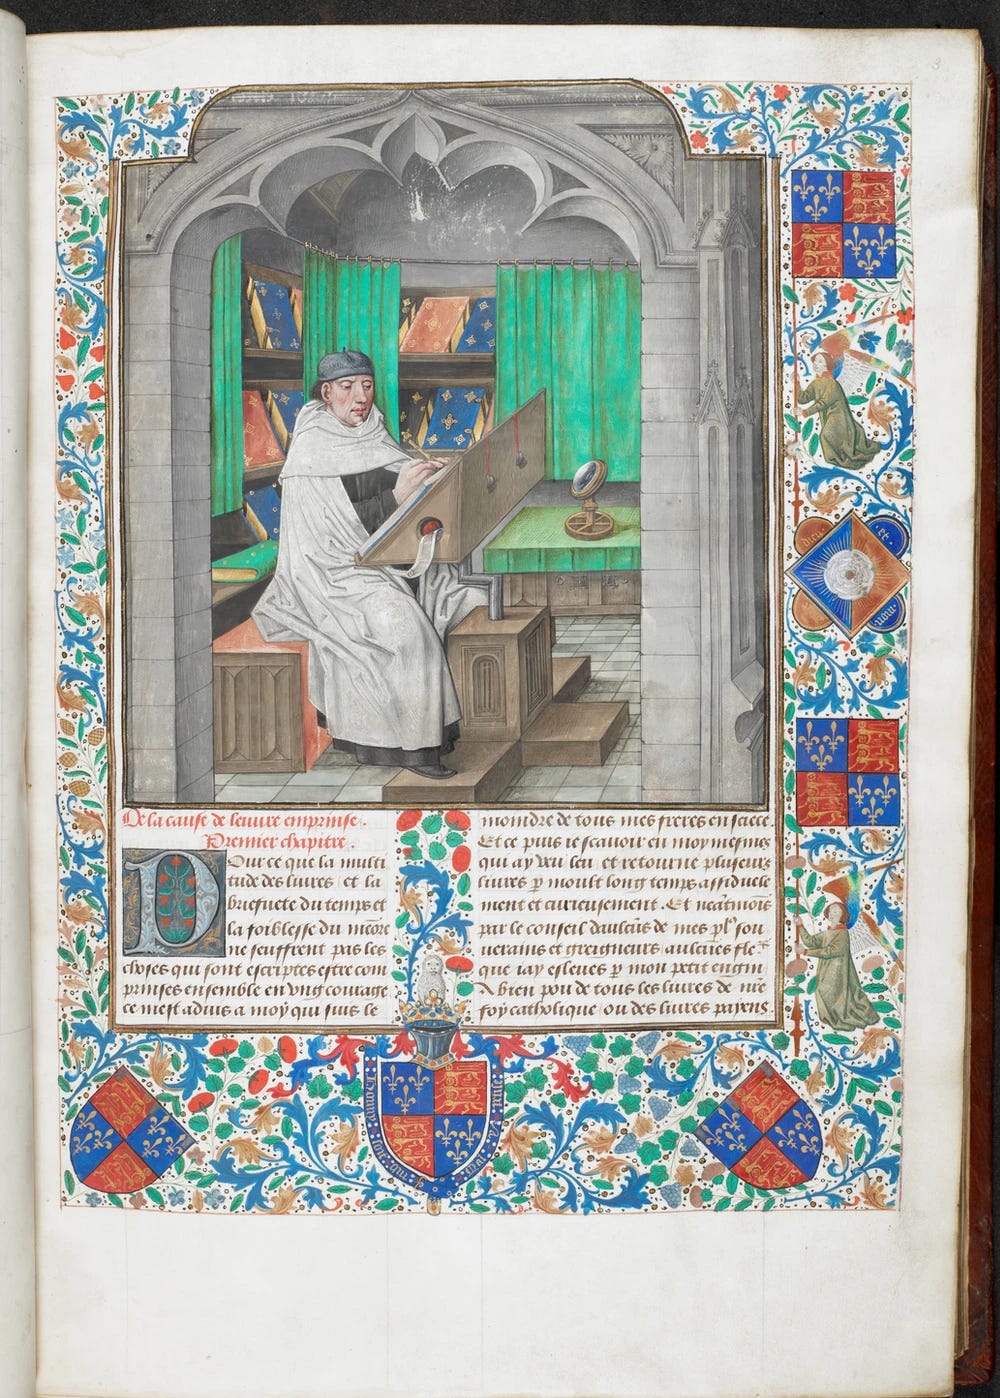 De la cause de leuure emprinse.
Premier chapitre.
Pour ce que la multi
tude des liures / et la
briefuete du temps et
la foiblesse du memoere
ne seuffrent pas les
choses qui sont escriptes estre com
prinses ensemble en vng courage
ce mest aduis a moy qui suis le
moindre de tous mes freres en faece
Et ce puis ie scauoir en moy mesmes
qui ay veu leu et retourne plusieurs
liures p moult long temps assiduele
ment et curieusement. Et neatmois
par le conseil daulcuns de mes
uerains et greigneurs aulcunes
que iay esleues p mon petit engin
A bien pou de tous les liures de
foy catholique / ou des liures payens
dieu et mon
honny soit qui mal y pense
3